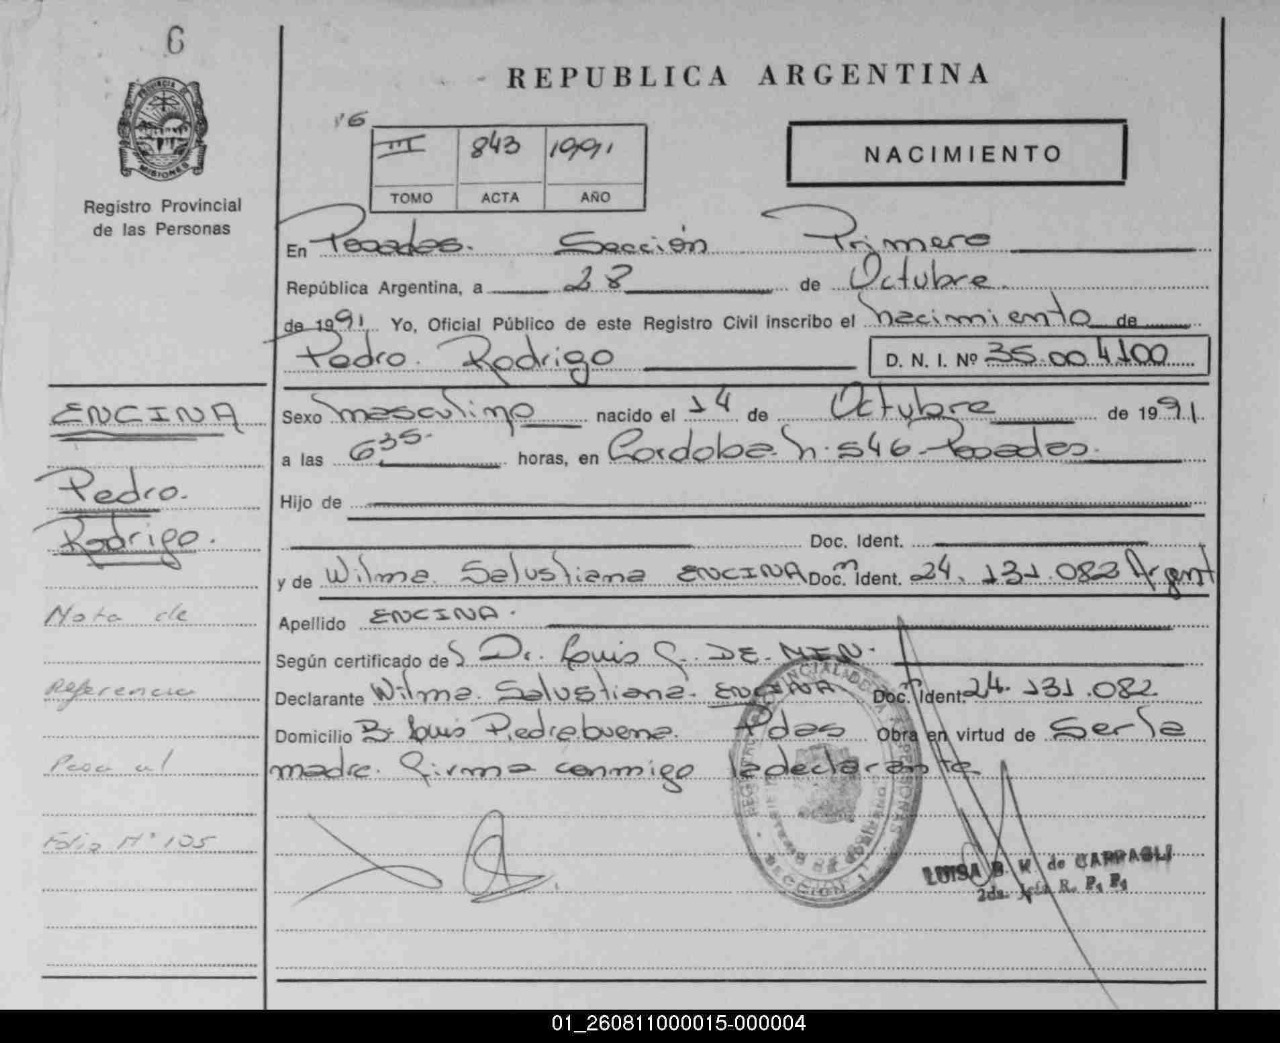 6
REPUBLICA ARGENTINA
PROVINCIA DE
MISIONES
Registro Provincial
de las Personas
16
III 843 1991
TOMO ACTA AÑO
NACIMIENTO
En Posadas. Sección Primera
República Argentina, a 28 de Octubre.
de 1991 Yo, Oficial Público de este Registro Civil inscribo el nacimiento de
Pedro. Rodrigo D. N. I. Nº 35.004.100
ENCINA
Pedro.
Rodrigo.
Nota de
Referencia
Pasa al
Folio Nº 105
Sexo masculino nacido el 14 de Octubre de 1991.
a las 6 35. horas, en Cordoba. n. 546 Posadas.
Hijo de
Doc. Ident.
y de Wilma. Salustiana ENCINA Doc. Ident. 24. 131.082 Argent
Apellido ENCINA.
Según certificado de Dr. Luis DE.
Declarante Wilma. Salustiana. ENCINA Doc. Ident. 24. 131.082
Domicilio Bº Luis Piedrabuena. Pdas Obra en virtud de Ser la
madre. Firma conmigo la declarante
LUISA B. K. de CARPAGLI
2da. Jefa R. P. P.
01_260811000015-000004